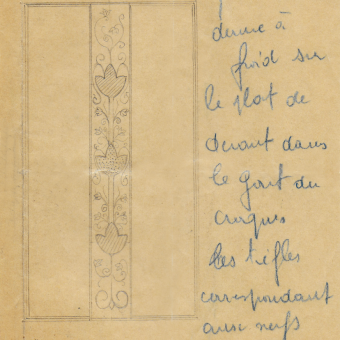 dence à
froid sur
le plat de
devant dans
le gout du
croquis
les trèfles
correspondant
aux nerfs